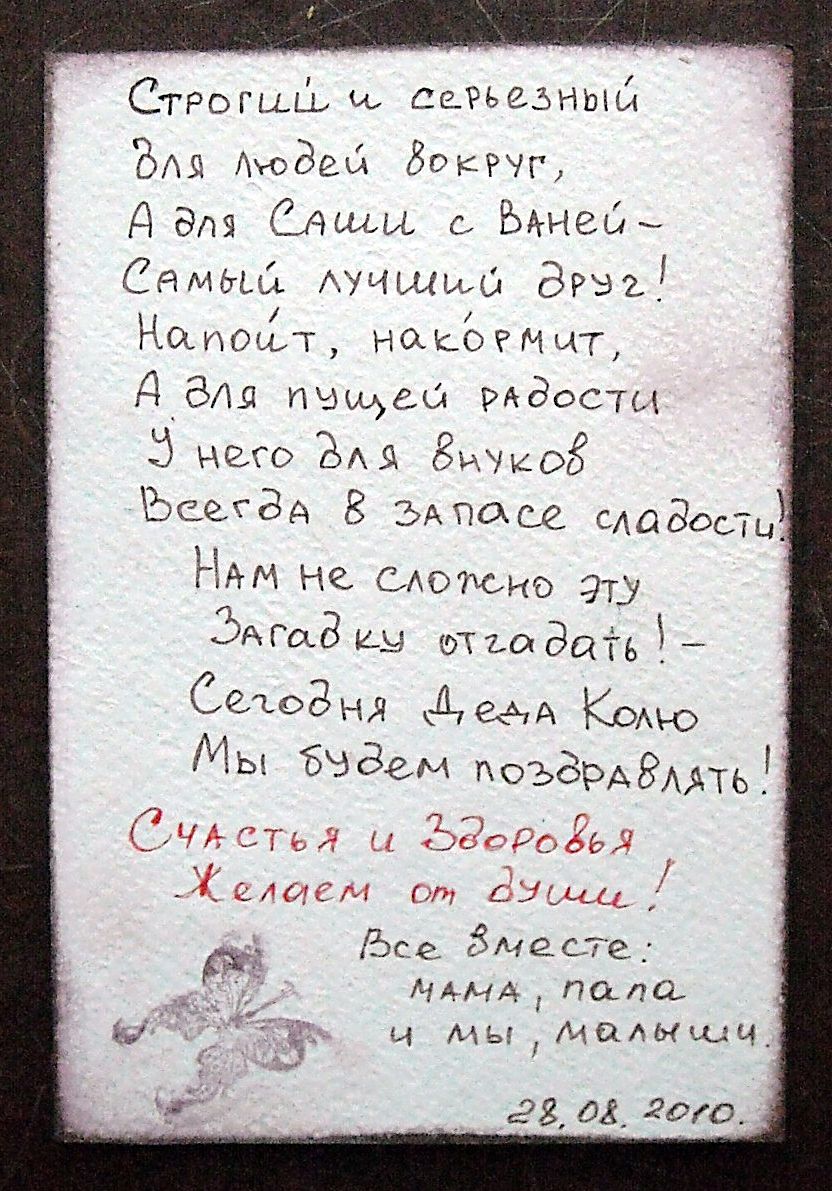 Строгий и серьезный
для людей вокруг,
А для Саши с Ваней–
Самый лучший друг!
Напои́т, нако́рмит,
А для пущей радости
У него для внуков
Всегда в запасе сладости!
Нам не сложно эту
Загадку отгадать! –
Сегодня Деда Колю
Мы будем поздравлять!
Счастья и Здоровья
Желаем от души!
Все вместе:
мама, папа
и мы, малыши.
28.08.2010.